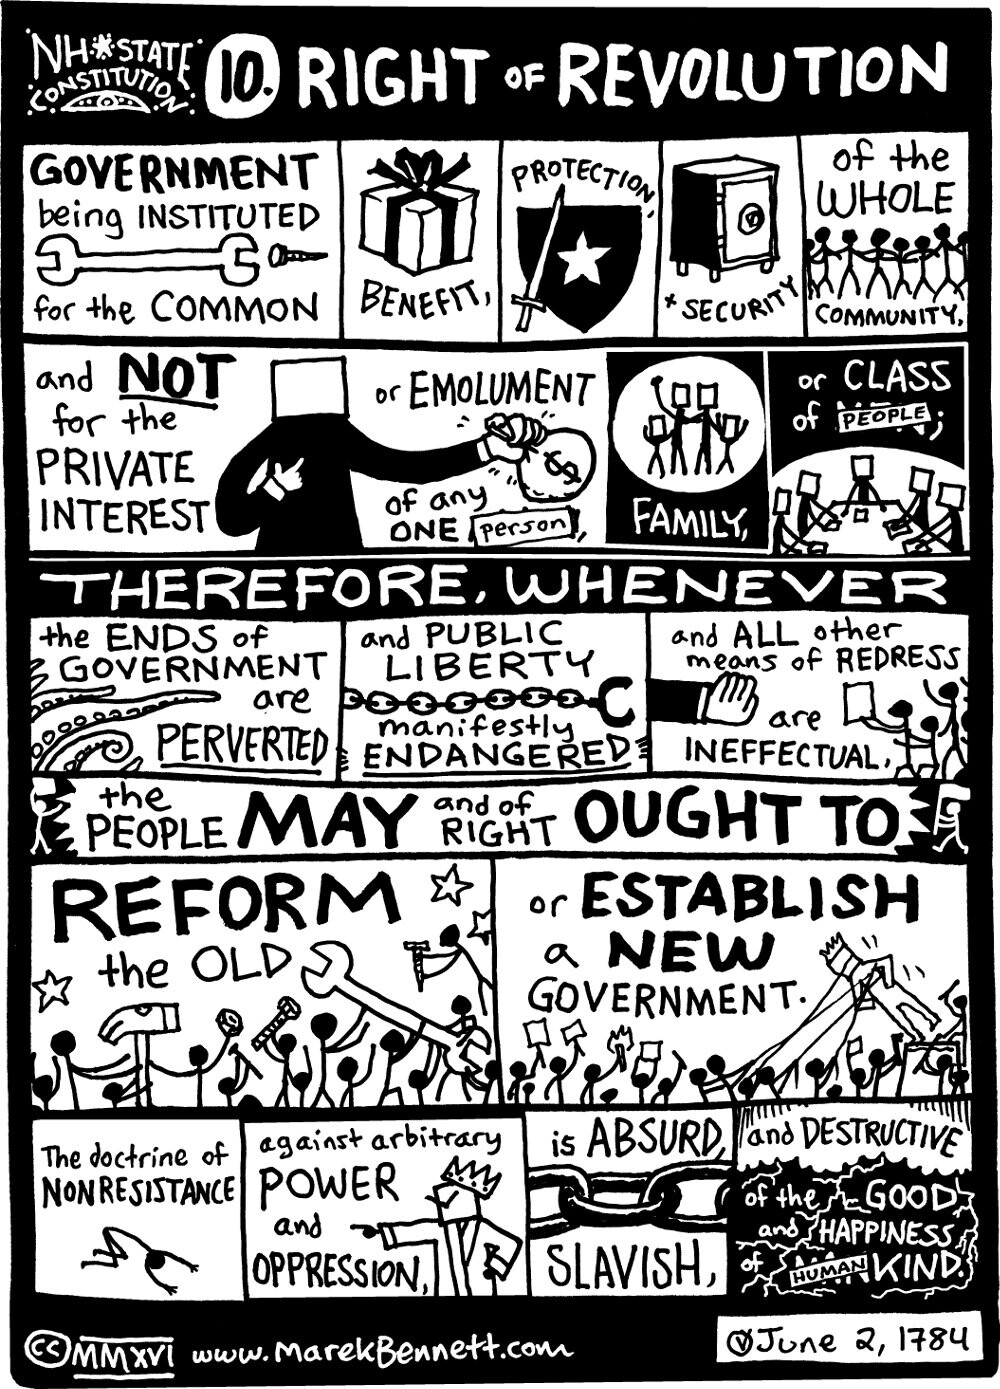 NH STATE
CONSTITUTION
10. RIGHT OF REVOLUTION
GOVERNMENT
being INSTITUTED
for the COMMON
BENEFIT,
PROTECTION,
+ SECURITY
of the
WHOLE
COMMUNITY,
and NOT
for the
PRIVATE
INTEREST
or EMOLUMENT
$
of any
ONE person,
FAMILY,
or CLASS
of PEOPLE;
THEREFORE, WHENEVER
the ENDS of
GOVERNMENT
are
PERVERTED
and PUBLIC
LIBERTY
manifestly
ENDANGERED
and ALL other
means of REDRESS
are
INEFFECTUAL,
the
PEOPLE MAY and of
RIGHT OUGHT TO
REFORM
the OLD
or ESTABLISH
a NEW
GOVERNMENT.
The doctrine of
NONRESISTANCE
against arbitrary
POWER
and
OPPRESSION,
is ABSURD,
SLAVISH,
and DESTRUCTIVE
of the GOOD
and HAPPINESS
of HUMANKIND.
cc MMXVI www.MarekBennett.com
June 2, 1784